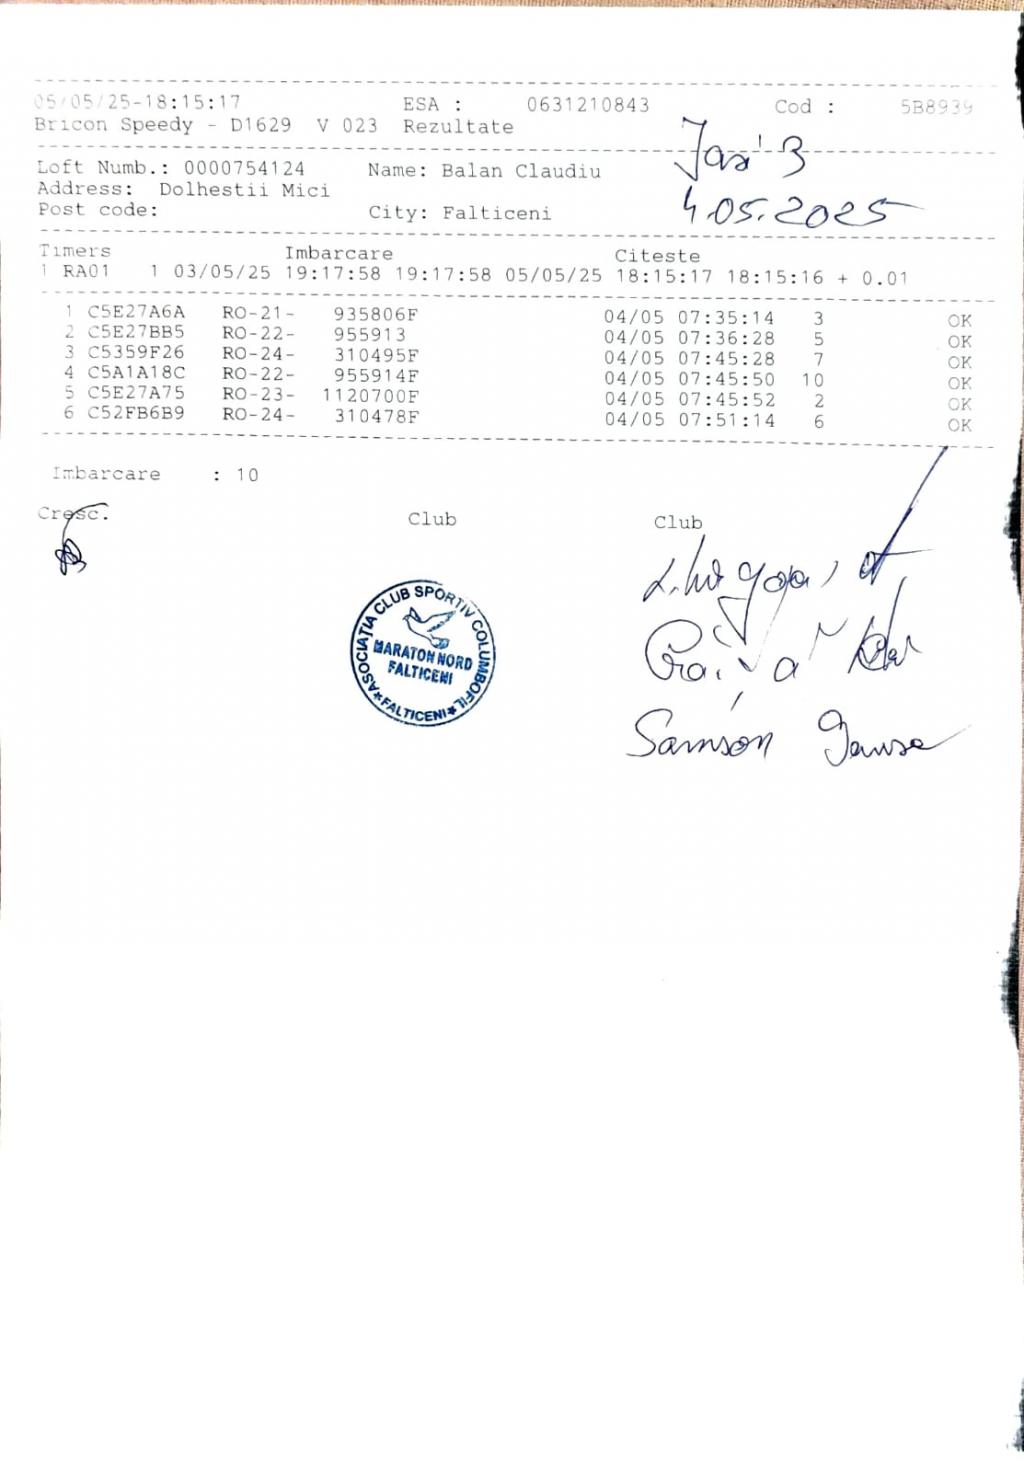 05/05/25-18:15:17 ESA : 0631210843 Cod : 5B8939
Bricon Speedy - D1629 V 023 Rezultate
Iasi 3
Loft Numb.: 0000754124 Name: Balan Claudiu
Address: Dolhestii Mici
Post code: City: Falticeni
4.05.2025
Timers Imbarcare Citeste
1 RA01 1 03/05/25 19:17:58 19:17:58 05/05/25 18:15:17 18:15:16 + 0.01
1 C5E27A6A RO-21- 935806F 04/05 07:35:14 3 OK
2 C5E27BB5 RO-22- 955913 04/05 07:36:28 5 OK
3 C5359F26 RO-24- 310495F 04/05 07:45:28 7 OK
4 C5A1A18C RO-22- 955914F 04/05 07:45:50 10 OK
5 C5E27A75 RO-23- 1120700F 04/05 07:45:52 2 OK
6 C52FB6B9 RO-24- 310478F 04/05 07:51:14 6 OK
Imbarcare : 10
Cresc. Club Club
ASOCIAȚIA CLUB SPORTIV COLUMBOFIL
MARATON NORD
FALTICENI
*FALTICENI*
Samson